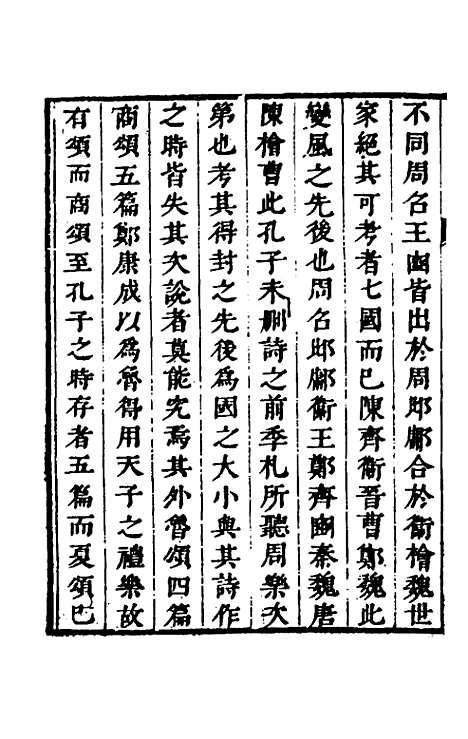 不同周召王豳皆出於周邶鄘合於衛檜魏世
家絕其可考者七國而已陳齊衛晉曹鄭魏此
變風之先後也周召邶鄘衛王鄭齊豳秦魏唐
陳檜曹此孔子未刪詩之前季札所聽周樂次
第也考其得封之先後為國之大小與其詩作
之時皆失其次說者莫能究焉其外魯頌四篇
商頌五篇鄭康成以為魯得用天子之禮樂故
有頌而商頌至孔子之時存者五篇而夏頌已